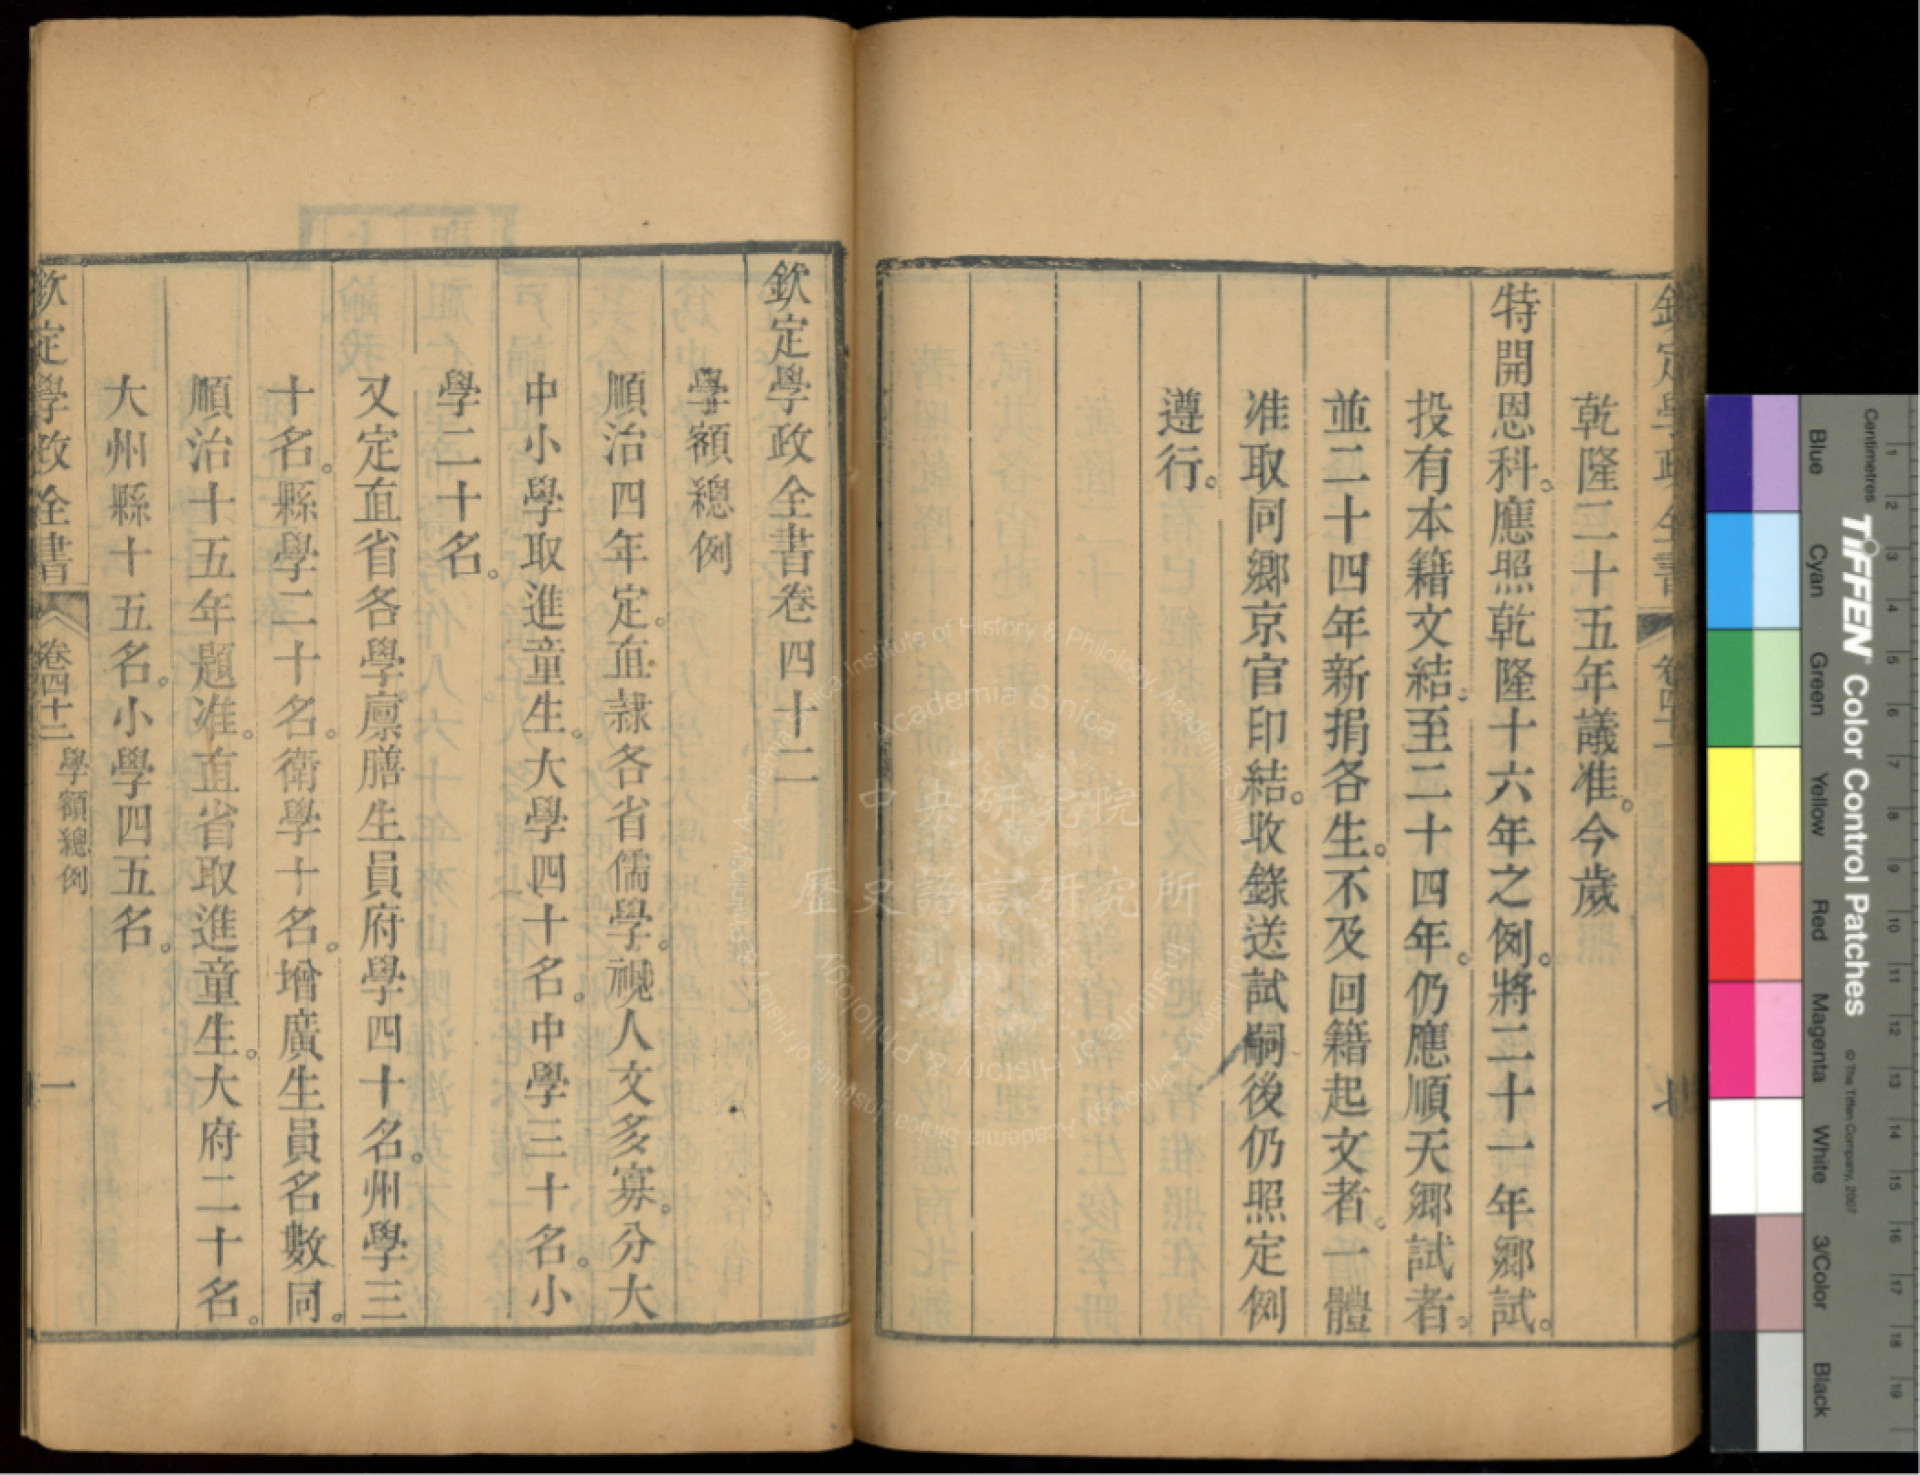 欽定學政全書
卷四十一
乾隆二十五年議准。今歲
特開恩科。應照乾隆十六年之例。將二十一年鄉試。
投有本籍文結。至二十四年。仍應順天鄉試者。
並二十四年新捐各生。不及回籍起文者。一體
准取同鄉京官印結。收錄送試。嗣後仍照定例
遵行。
欽定學政全書卷四十二
學額總例
順治四年定。直隸各省儒學。視人文多寡。分大
中小學取進童生。大學四十名。中學三十名。小
學二十名。
又定直省各學廩膳生員。府學四十名。州學三
十名。縣學二十名。衛學十名。增廣生員名數同。
順治十五年題准。直省取進童生。大府二十名。
大州縣十五名。小學四五名。
欽定學政全書
卷四十二
學額總例
一
中央研究院
歷史語言研究所
Academia Sinica
Institute of History & Philology, Academia Sinica
Centimetres
TIFFEN Color Control Patches
© The Tiffen Company, 2007
Blue
Cyan
Green
Yellow
Red
Magenta
White
3/Color
Black
1
2
3
4
5
6
7
8
9
10
11
12
13
14
15
16
17
18
19